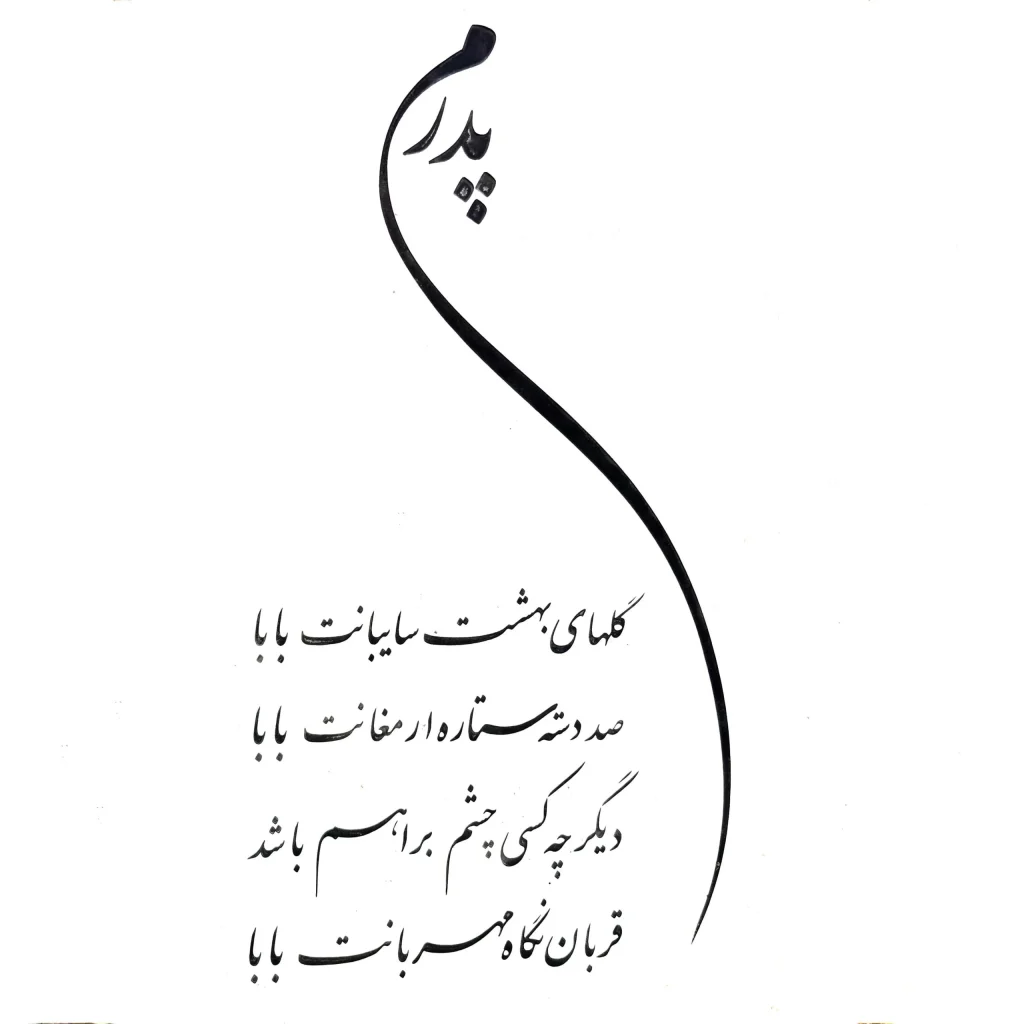 پدرم
گلهای بهشت سایبانت بابا
صد دسته ستاره ارمغانت بابا
دیگر چه کسی چشم براهم باشد
قربان نگاه مهربانت بابا